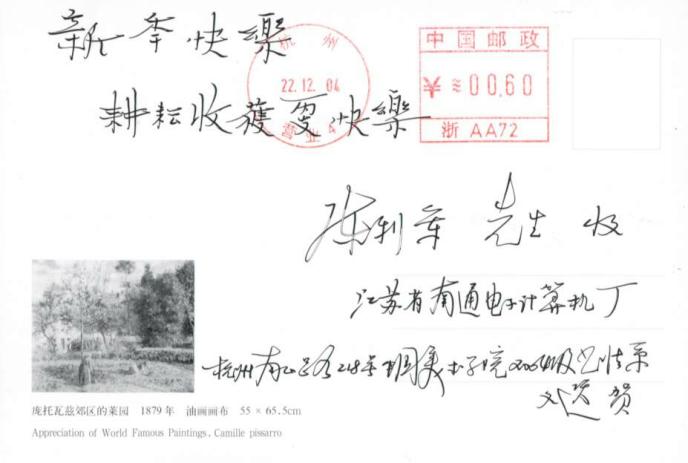 新年快樂
耕耘收獲更快樂
杭州
22.12.04
营业4
中国邮政
¥≈00.60
浙 AA72
陈利 先生 收
江苏省南通电子计算机厂
杭州南山路218号 中国美术学院 系
贺
庞托瓦兹郊区的菜园 1879年 油画画布 55×65.5cm
Appreciation of World Famous Paintings, Camille pissarro